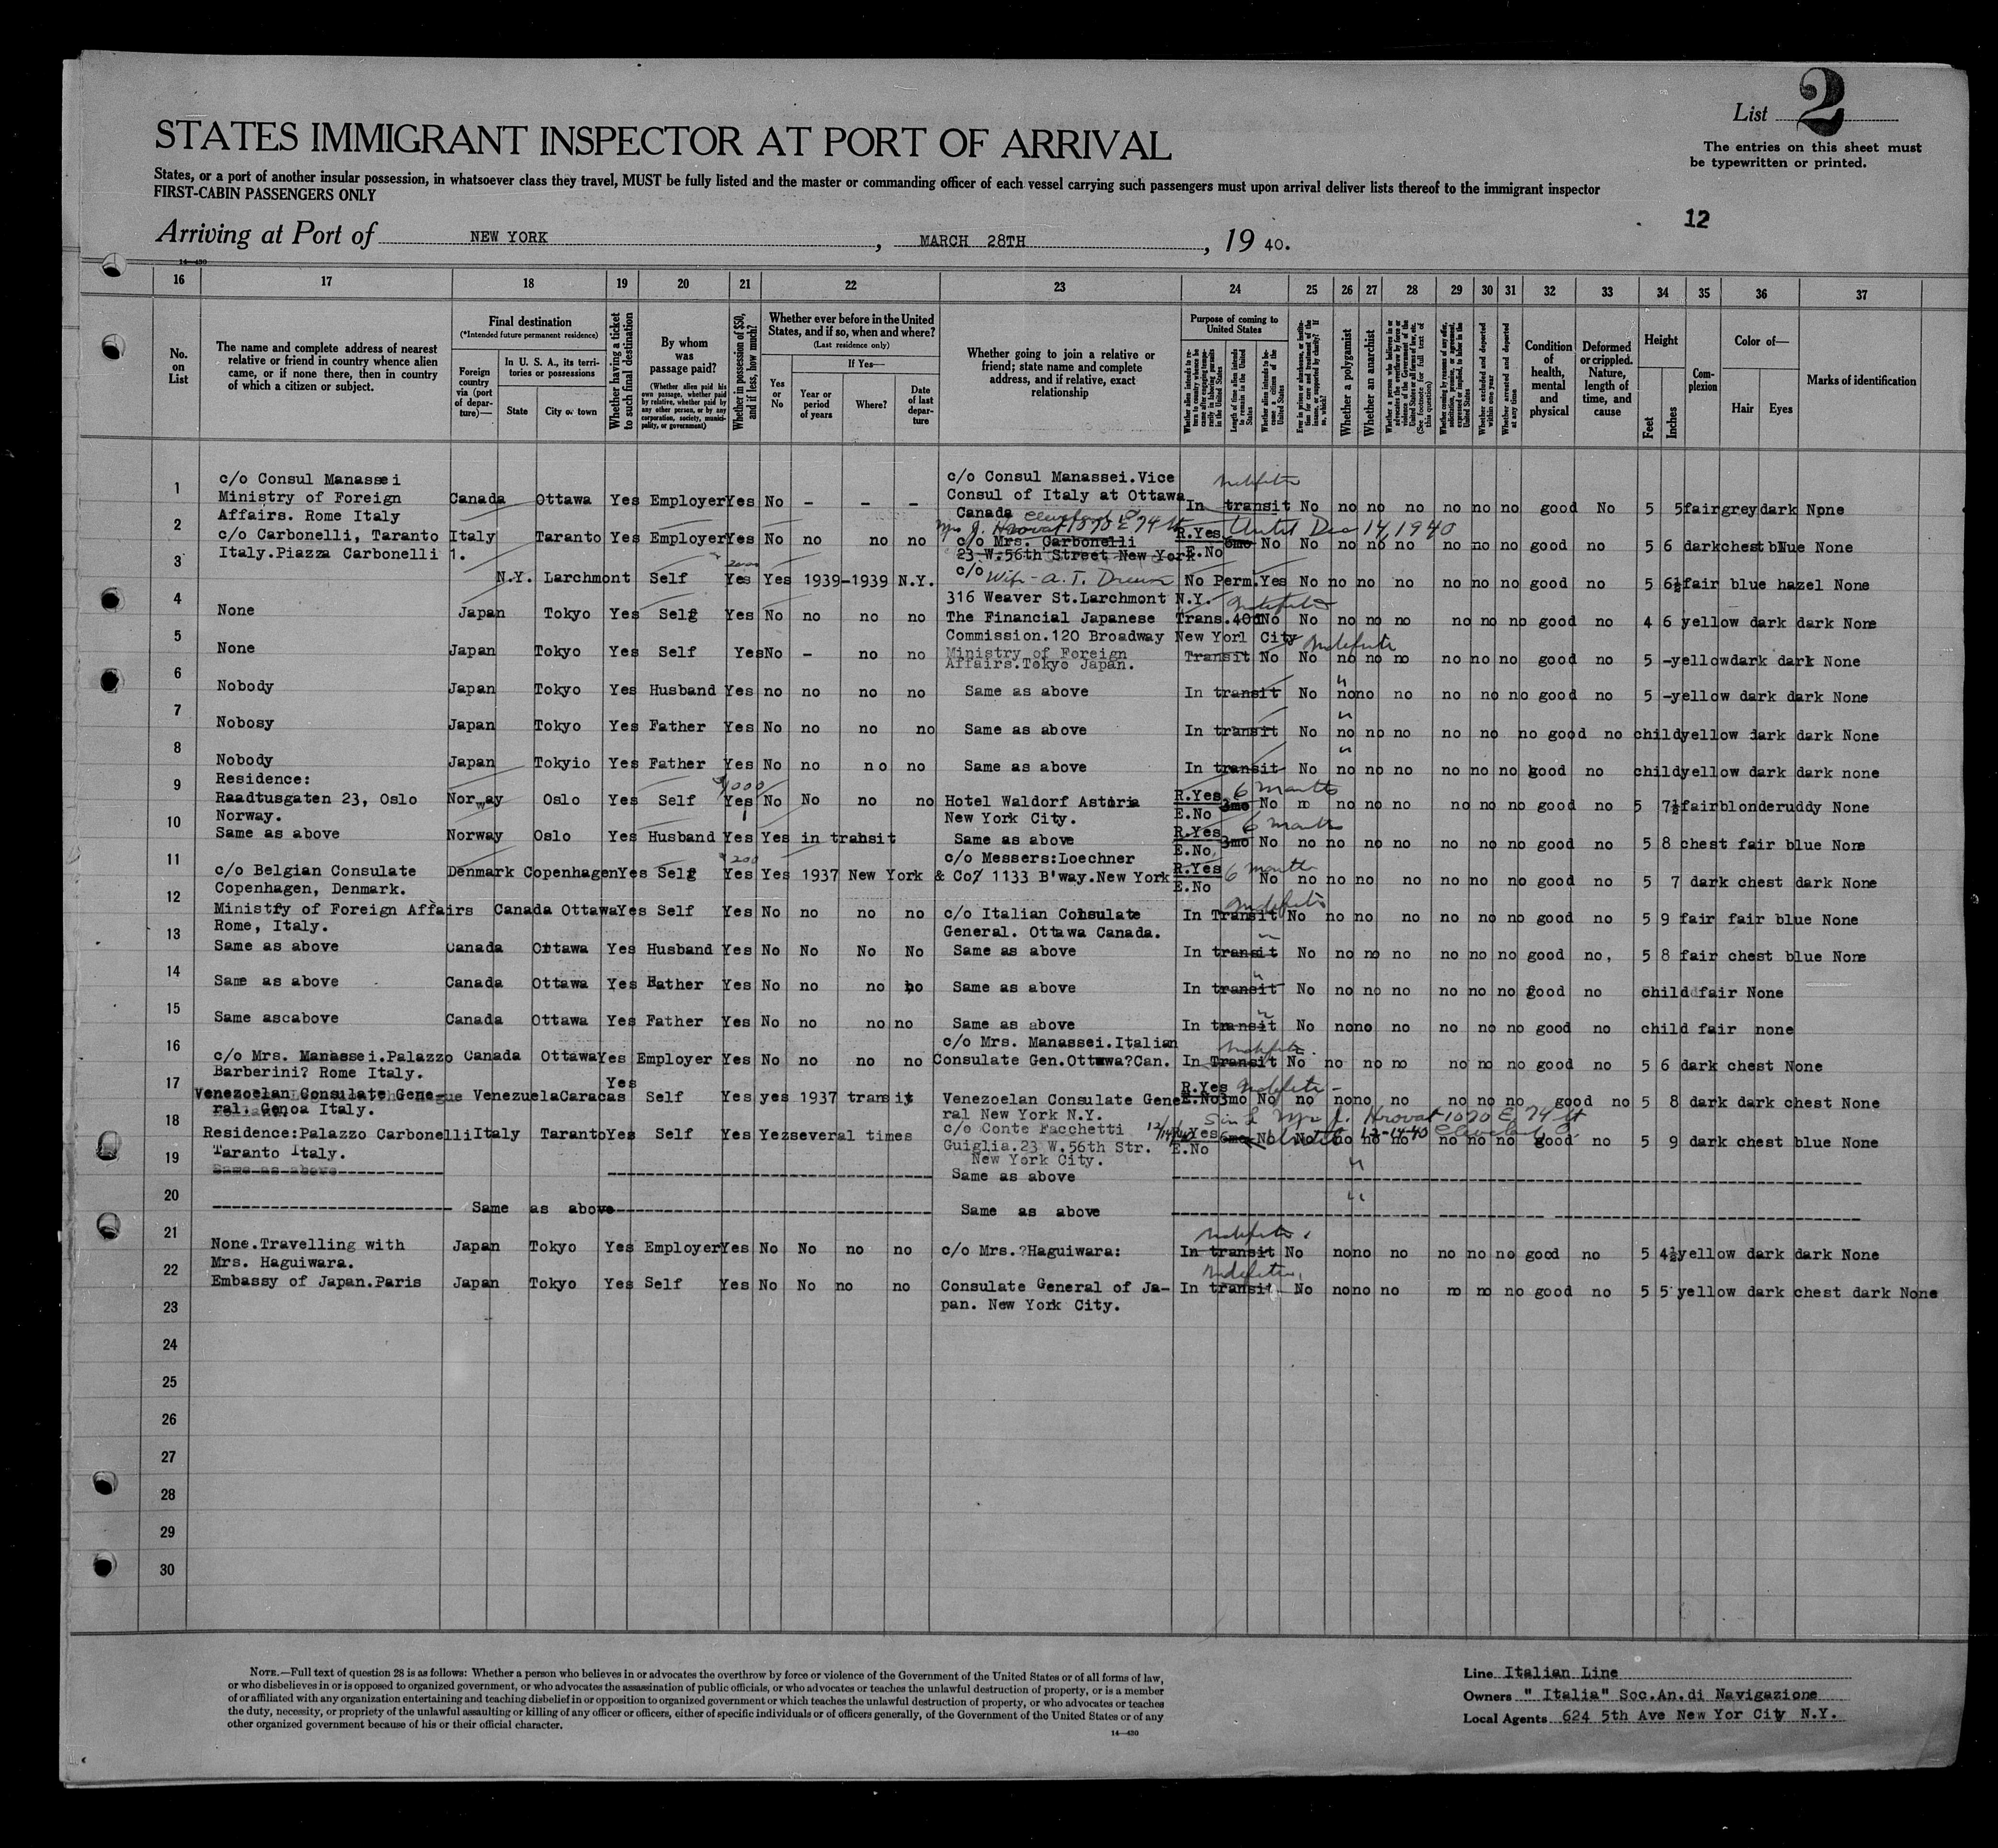 List 2
STATES IMMIGRANT INSPECTOR AT PORT OF ARRIVAL
The entries on this sheet must
be typewritten or printed.
States, or a port of another insular possession, in whatsoever class they travel, MUST be fully listed and the master or commanding officer of each vessel carrying such passengers must upon arrival deliver lists thereof to the immigrant inspector
FIRST-CABIN PASSENGERS ONLY
12
Arriving at Port of NEW YORK , MARCH 28TH , 19 40.
14—430
16 17 18 19 20 21 22 23 24 25 26 27 28 29 30 31 32 33 34 35 36 37
No. on List
The name and complete address of nearest relative or friend in country whence alien came, or if none there, then in country of which a citizen or subject.
Final destination
(*Intended future permanent residence)
Foreign country via (port of departure)—
In U. S. A., its territories or possessions
State City or town
Whether having a ticket to such final destination
By whom was passage paid?
(Whether alien paid his own passage, whether paid by relative, whether paid by any other person, or by any corporation, society, municipality, or government)
Whether in possession of $50, and if less, how much?
Whether ever before in the United States, and if so, when and where?
(Last residence only)
Yes or No
If Yes—
Year or period of years Where? Date of last departure
Whether going to join a relative or friend; state name and complete address, and if relative, exact relationship
Purpose of coming to United States
Length of time alien intends to remain in the United States
Whether alien intends to become a citizen of the United States
Whether a polygamist
Whether an anarchist
Condition of health, mental and physical
Deformed or crippled. Nature, length of time, and cause
Height
Feet Inches
Complexion
Color of—
Hair Eyes
Marks of identification
1 c/o Consul Manassei c/o Consul Manassei.Vice
Ministry of Foreign Canada Ottawa Yes Employer Yes No - - - Consul of Italy at Ottawa In transit No no no no no no no good No 5 5 fair grey dark None
Affairs. Rome Italy Canada
2 c/o Carbonelli, Taranto Italy Taranto Yes Employer Yes No no no no c/o Mrs. Carbonelli R.Yes 6mo No No no no no no no no good no 5 6 dark chest blue None
Until Dec 14, 1940
Italy.Piazza Carbonelli 1. 23 W.56th Street New York E.No
3 N.Y. Larchmont Self Yes Yes 1939-1939 N.Y. c/o Wife - A. T. No Perm. Yes No no no no no no no good no 5 6½ fair blue hazel None
316 Weaver St.Larchmont N.Y.
4 None Japan Tokyo Yes Self Yes No no no no The Financial Japanese Trans. No No no no no no no no good no 4 6 yellow dark dark None
Commission.120 Broadway New Yorl City
5 None Japan Tokyo Yes Self Yes No - no no Ministry of Foreign Transit No No no no no no no no good no 5 - yellow dark dark None
Affairs.Tokyo Japan.
6 Nobody Japan Tokyo Yes Husband Yes no no no no Same as above In transit No no no no no no no good no 5 - yellow dark dark None
7 Nobosy Japan Tokyo Yes Father Yes No no no no Same as above In transit No no no no no no no good no child yellow dark dark None
8 Nobody Japan Tokyio Yes Father Yes No no no no Same as above In transit No no no no no no no good no child yellow dark dark none
9 Residence:
Raadtusgaten 23, Oslo Norway Oslo Yes Self Yes No No no no Hotel Waldorf Astoria R.Yes 3mo 6 months No no no no no no no no good no 5 7½ fair blonde ruddy None
Norway. New York City. E.No
10 Same as above Norway Oslo Yes Husband Yes Yes in transit Same as above R.Yes 3mo 6 months No no no no no no no no good no 5 8 chest fair blue None
E.No.
11 c/o Messers:Loechner
c/o Belgian Consulate Denmark Copenhagen Yes Self Yes Yes 1937 New York & Co. 1133 B'way.New York R.Yes 6 months No no no no no no no no good no 5 7 dark chest dark None
Copenhagen, Denmark. E.No
12 Ministry of Foreign Affairs Canada Ottawa Yes Self Yes No no no no c/o Italian Consulate In Transit No no no no no no no good no 5 9 fair fair blue None
Rome, Italy. General. Ottawa Canada.
13 Same as above Canada Ottawa Yes Husband Yes No No No No Same as above In transit No no no no no no no good no, 5 8 fair chest blue None
14 Same as above Canada Ottawa Yes Father Yes No no no no Same as above In transit No no no no no no no good no child fair None
15 Same ascabove Canada Ottawa Yes Father Yes No no no no Same as above In transit No no no no no no no good no child fair none
16 c/o Mrs. Manassei.Italian
c/o Mrs. Manassei.Palazzo Canada Ottawa Yes Employer Yes No no no no Consulate Gen.Ottawa?Can. In Transit No no no no no no no good no 5 6 dark chest None
Barberini? Rome Italy.
17 Venezoelan Consulate Gene Venezuela Caracas Yes Self Yes yes 1937 transit Venezoelan Consulate Gene R.Yes E.No 3mo No no no no no no no no good no 5 8 dark dark chest None
ral. Genoa Italy. ral New York N.Y.
18 Residence:Palazzo Carbonelli Italy Taranto Yes Self Yes Yez several times c/o Conte Facchetti R.Yes 6mo No No no no no no no no good no 5 9 dark chest blue None
Taranto Italy. Guiglia.23 W.56th Str. E.No
New York City.
19 Same as above Same as above
20 Same as above Same as above
21 None.Travelling with Japan Tokyo Yes Employer Yes No No no no c/o Mrs.?Haguiwara: In transit No no no no no no no good no 5 4½ yellow dark dark None
Mrs. Haguiwara.
22 Embassy of Japan.Paris Japan Tokyo Yes Self Yes No No no no Consulate General of Ja- In transit No no no no no no no good no 5 5 yellow dark chest dark None
pan. New York City.
23
24
25
26
27
28
29
30
NOTE.—Full text of question 28 is as follows: Whether a person who believes in or advocates the overthrow by force or violence of the Government of the United States or of all forms of law,
or who disbelieves in or is opposed to organized government, or who advocates the assassination of public officials, or who advocates or teaches the unlawful destruction of property, or is a member
of or affiliated with any organization entertaining and teaching disbelief in or opposition to organized government or which teaches the unlawful destruction of property, or who advocates or teaches
the duty, necessity, or propriety of the unlawful assaulting or killing of any officer or officers, either of specific individuals or of officers generally, of the Government of the United States or of any
other organized government because of his or their official character.
14—430
Line Italian Line
Owners "Italia" Soc.An.di Navigazione
Local Agents 624 5th Ave New Yor City N.Y.